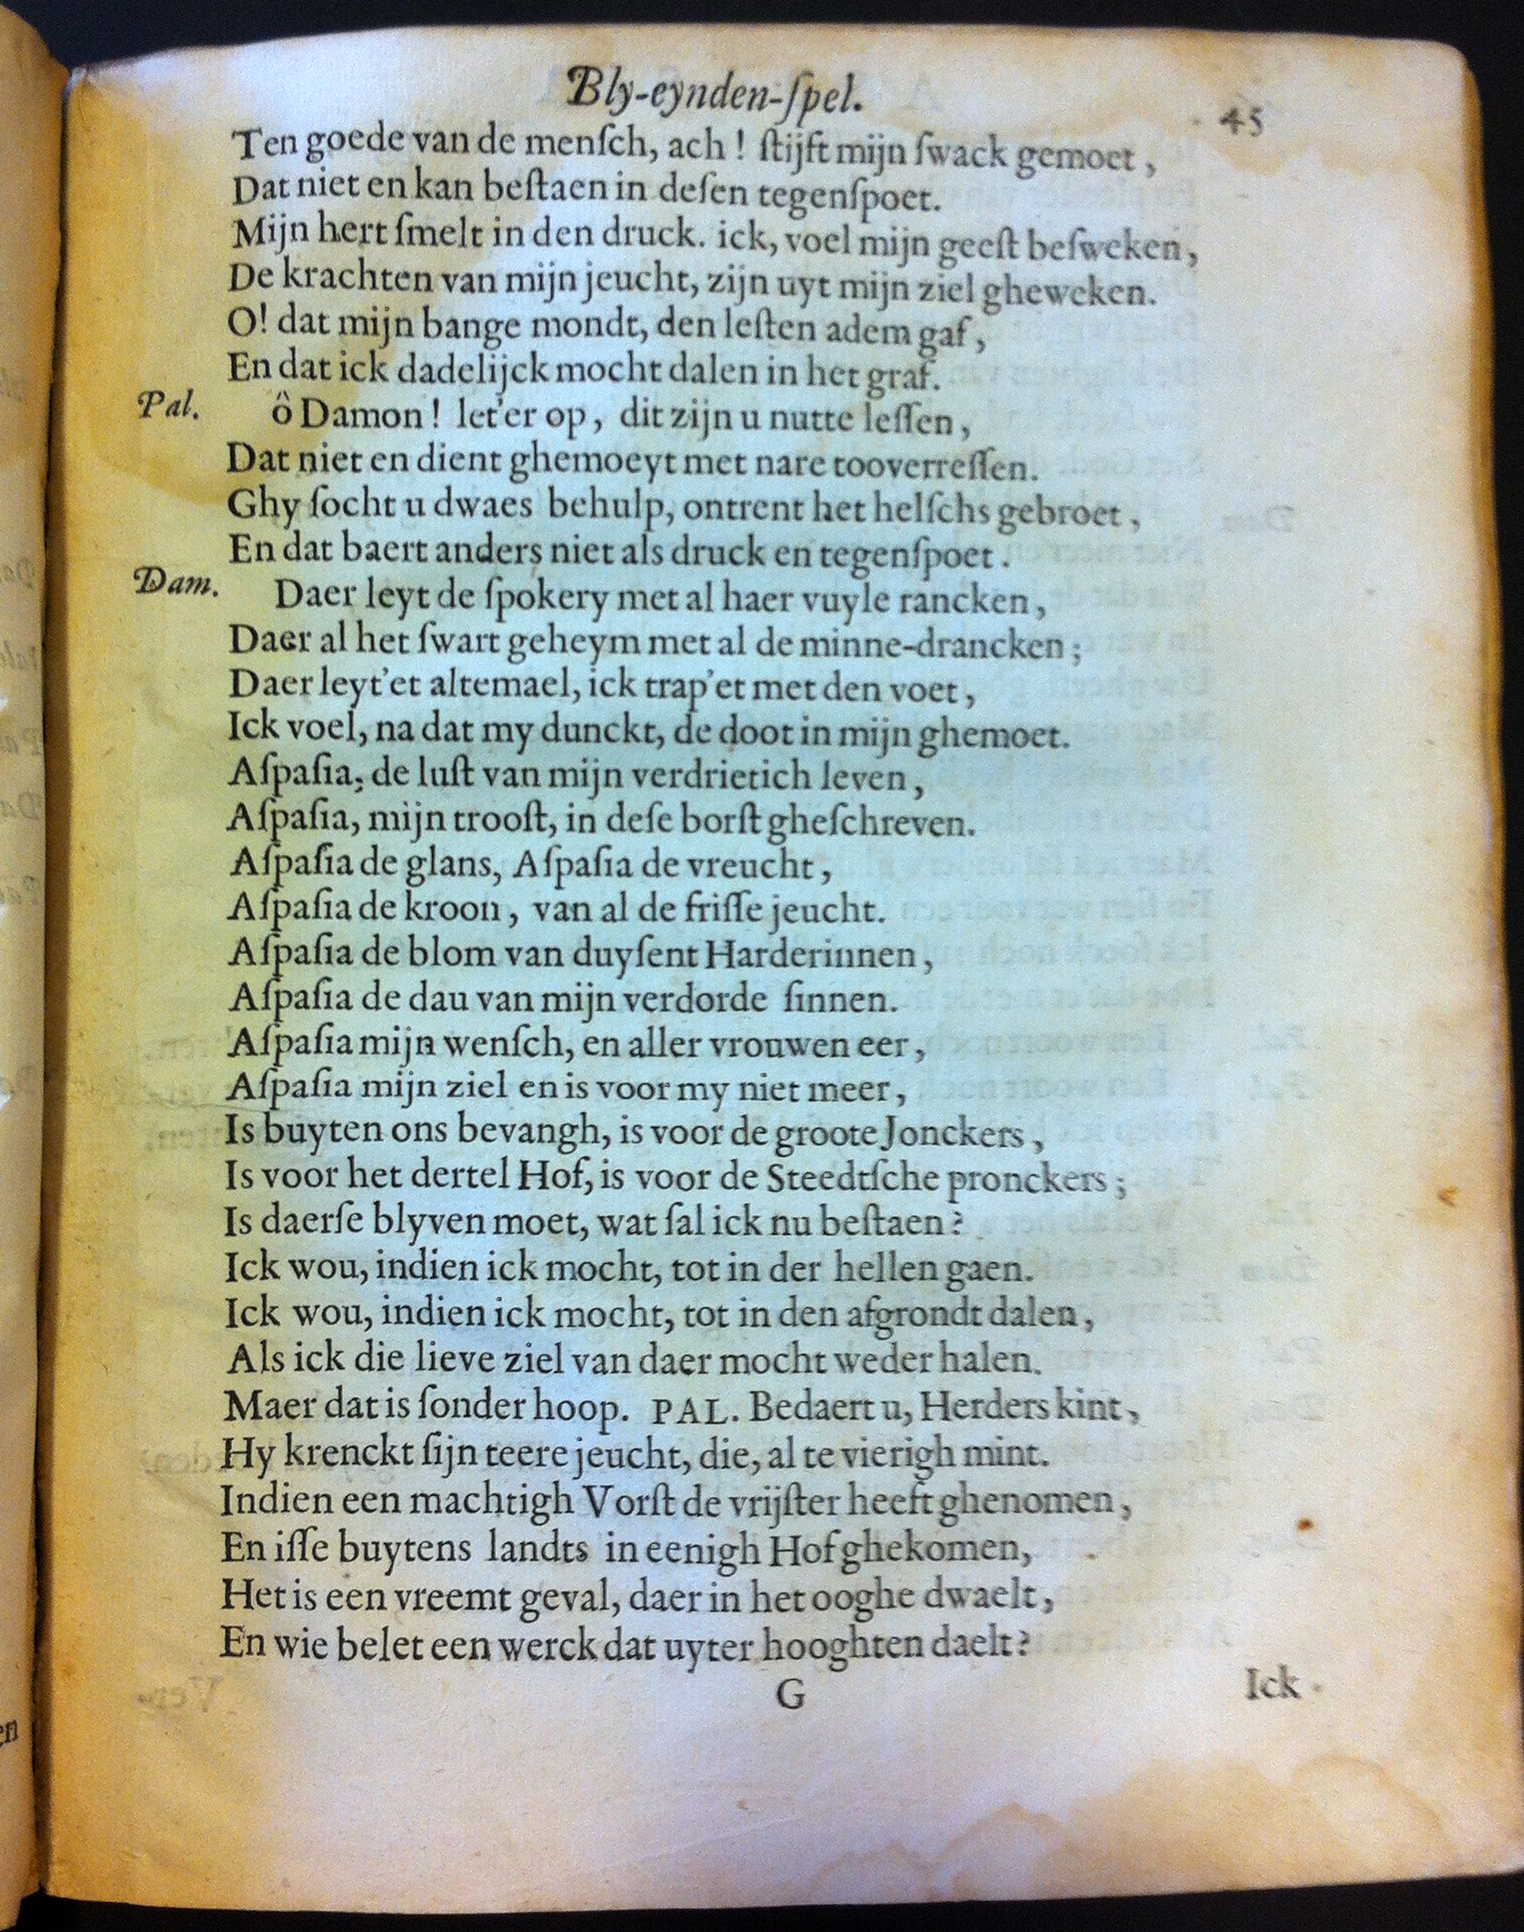 Bly-eynden-ſpel.
45
Ten goede van de menſch, ach! ſtijft mijn ſwack gemoet,
Dat niet en kan beſtaen in deſen tegenſpoet.
Mijn hert ſmelt in den druck. ick, voel mijn geeſt beſweken,
De krachten van mijn jeucht, zijn uyt mijn ziel gheweken.
O! dat mijn bange mondt, den leſten adem gaf,
En dat ick dadelijck mocht dalen in het graf.
Pal. ô Damon! let'er op, dit zijn u nutte leſſen,
Dat niet en dient ghemoeyt met nare tooverreſſen.
Ghy ſocht u dwaes behulp, ontrent het helſchs gebroet,
En dat baert anders niet als druck en tegenſpoet.
Dam. Daer leyt de ſpokery met al haer vuyle rancken,
Daer al het ſwart geheym met al de minne-drancken;
Daer leyt'et altemael, ick trap'et met den voet,
Ick voel, na dat my dunckt, de doot in mijn ghemoet.
Aſpaſia, de luſt van mijn verdrietich leven,
Aſpaſia, mijn trooſt, in deſe borſt gheſchreven.
Aſpaſia de glans, Aſpaſia de vreucht,
Aſpaſia de kroon, van al de friſſe jeucht.
Aſpaſia de blom van duyſent Harderinnen,
Aſpaſia de dau van mijn verdorde ſinnen.
Aſpaſia mijn wenſch, en aller vrouwen eer,
Aſpaſia mijn ziel en is voor my niet meer,
Is buyten ons bevangh, is voor de groote Jonckers,
Is voor het dertel Hof, is voor de Steedtſche pronckers;
Is daerſe blyven moet, wat ſal ick nu beſtaen?
Ick wou, indien ick mocht, tot in der hellen gaen.
Ick wou, indien ick mocht, tot in den afgrondt dalen,
Als ick die lieve ziel van daer mocht weder halen.
Maer dat is ſonder hoop. PAL. Bedaert u, Herders kint,
Hy krenckt ſijn teere jeucht, die, al te vierigh mint.
Indien een machtigh Vorſt de vrijſter heeft ghenomen,
En iſſe buytens landts in eenigh Hof ghekomen,
Het is een vreemt geval, daer in het ooghe dwaelt,
En wie belet een werck dat uyter hooghten daelt?
G
Ick